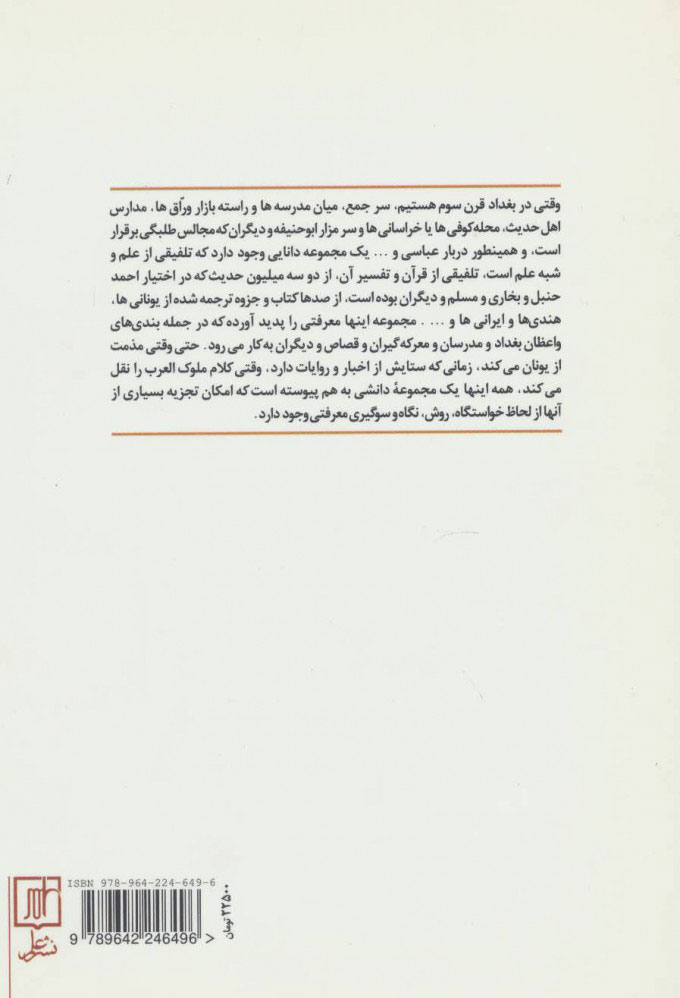 وقتی در بغداد قرن سوم هستیم، سر جمع، میان مدرسه ها و راسته بازار ورّاق ها، مدارس
اهل حدیث، محله کوفی ها یا خراسانی ها و سر مزار ابوحنیفه و دیگران که مجالس طلبگی برقرار
است، و همینطور دربار عباسی و ... یک مجموعه دانایی وجود دارد که تلفیقی از علم و
شبه علم است، تلفیقی از قرآن و تفسیر آن، از دو سه میلیون حدیث که در اختیار احمد
حنبل و بخاری و مسلم و دیگران بوده است، از صدها کتاب و جزوه ترجمه شده از یونانی ها،
هندی‌ها و ایرانی ها و ... . مجموعه اینها معرفتی را پدید آورده که در جمله بندی‌های
واعظان بغداد و مدرسان و معرکه گیران و قصاص و دیگران به کار می رود. حتی وقتی مذمت
از یونان می کند، زمانی که ستایش از اخبار و روایات دارد، وقتی کلام ملوک العرب را نقل
می کند، همه اینها یک مجموعهٔ دانشی به هم پیوسته است که امکان تجزیه بسیاری از
آنها از لحاظ خواستگاه، روش، نگاه و سوگیری معرفتی وجود دارد.
ISBN 978-964-224-649-6
9 789642 246496 >
۲۲۵۰۰ تومان
نشر علم